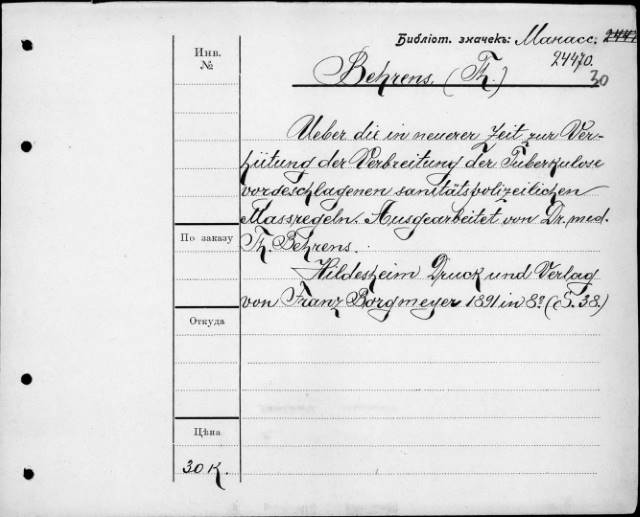 Библіот. значекъ: Манасс. 2447
24470.
30
Инв.
№
Behrens. (Th.)
Ueber die in neuerer Zeit zur Ver-
hütung der Verbreitung der Tuberkulose
vorgeschlagenen sanitätspolizeilichen
Massregeln. Ausgearbeitet von Dr. med.
По заказу
Th. Behrens.
Hildesheim Druck und Verlag
von Franz Borgmeyer 1891 in 8º (S. 38.)
Откуда
Цѣна
30 к.